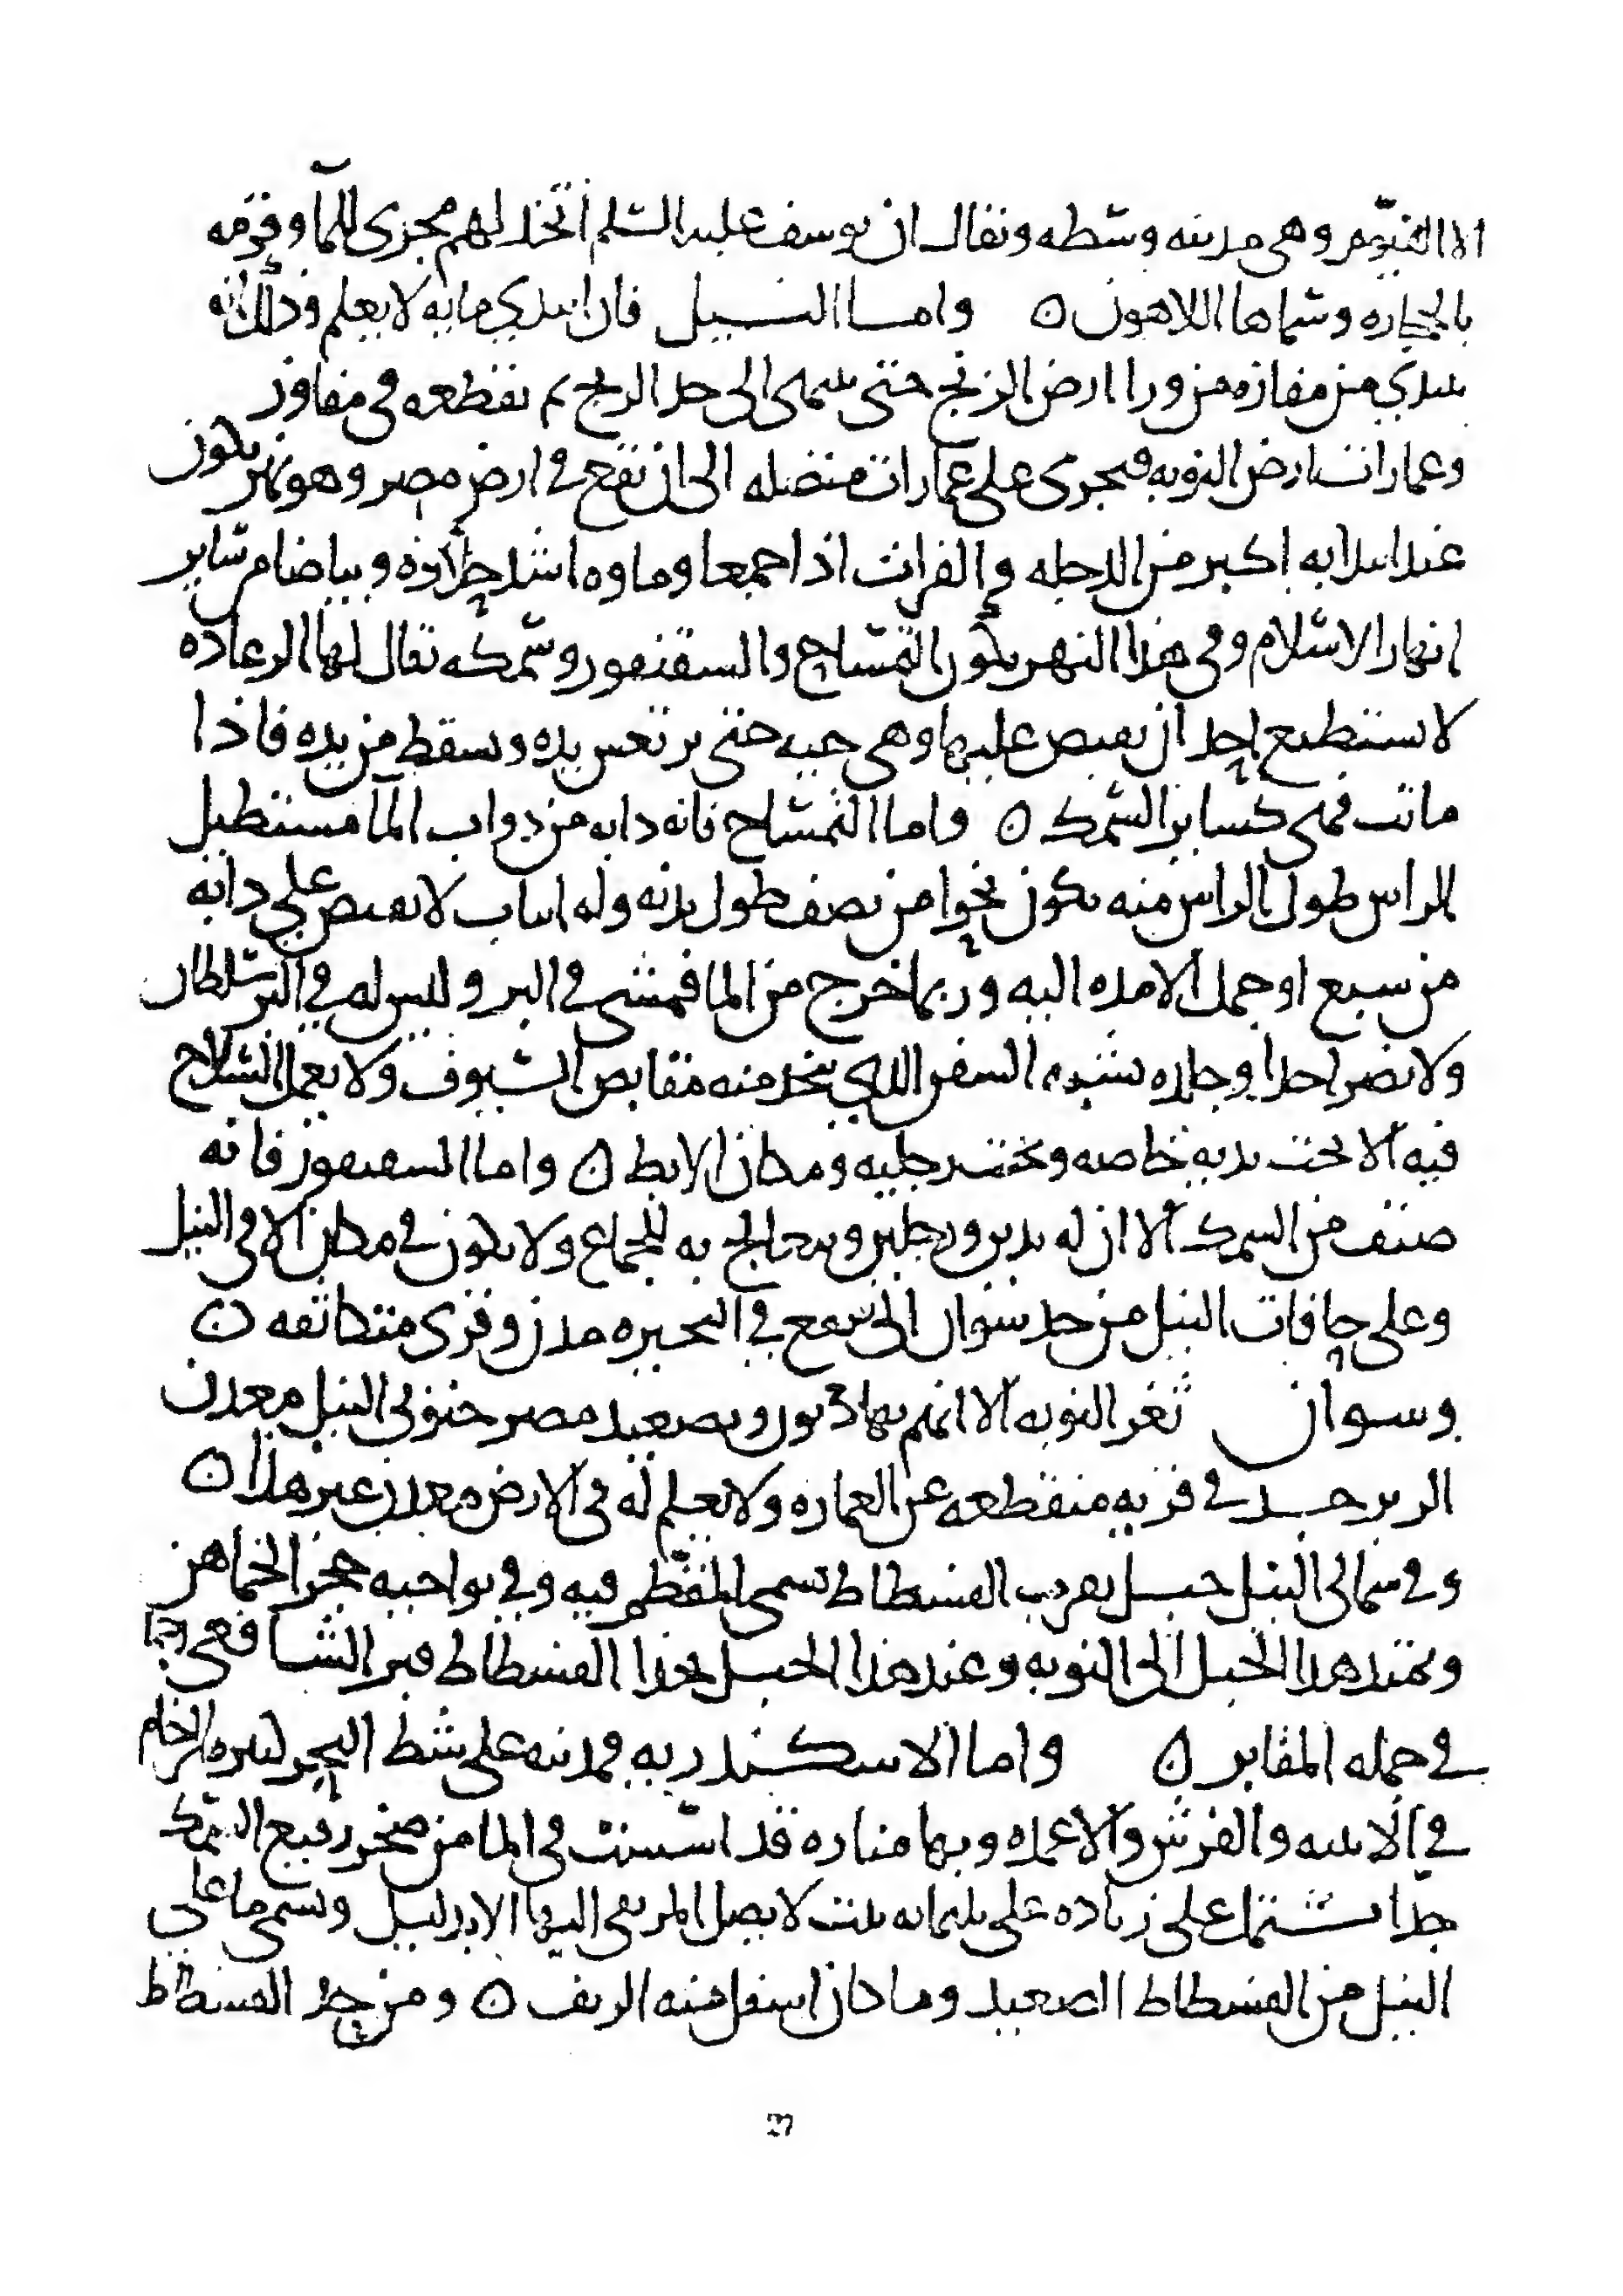 الا الفيّوم وهى مدينه وسّطه ويقال ان يوسف عليه السّلم اتخذ لهم مجرى للمآ وفرّقه
بالحجاره وسّماها اللاهون ن واما النيل فان ابتدي مايه لا يعلم وذلك انه
يبتدي من مفازه من ورا ارض الزنج حتى ينتهى الى حد الزنج ثم يقطعه فى مفاوز
وعمارات ارض النوبه فيجرى على عمارات متصله الى ان يقع فى ارض مصر وهو نهر يكون
عند ابتدايه اكبر من الدجله والفرات اذا جمعا وماوه اشد حلاوه وبياضا من سّاير
انهار الاسّلام وفى هذا النهر يكون التمسّاح والسقنقور وسّمكه تقال لها الرعاده
لا يستطيع احد ان يقبض عليها وهى حيه حتى يرتعس يده وتسقط من يده فاذا
ماتت فهى كساير السّمك ن واما التمسّاح فانه دابه من دواب المآ مستطيل
الراس طول الراس منه يكون نحوا من نصف طول بدنه وله انياب لا يقبض على دابه
من سبع او جمل الا مده اليه وربما خرج من الما فمشى فى البر وليس له فى البر سّلطان
ولا يضر احدا وجلده يشبه السفن الذي يتخذ منه مقابض السّيوف ولا يعمل السّلاح
فيه الا تحت يديه خاصه وتحت رجليه ومكان الابط ن واما السقنقور فانه
صنف من السمك الا ان له يدين ورجلين ويتعالج به للجماع ولا يكون فى مكان الا فى النيل
وعلى حافات النيل من حد سوان الى ان يقع فى البحيره مدن وقرى متكاثفه ن
وسوان ثغر النوبه الا انهم مهادنون وبصعيد مصر جنوبى النيل معدن
الزبرجد فى قريه منقطعه عن العماره ولا يعلم له فى الارض معدن غير هذا ن
وفى شمالى النيل جبل بقرب الفسطاط تسمى المقطم فيه وفى نواحيه حجر الخماهن
ويمتد هذا الجبل الى النوبه وعند هذا الجبل بحذا الفسطاط قبر الشافعى
فى جمله المقابر ن واما الاسكندريه فمدينه على شط البحر كثيره الرخام
فى الابنيه والفرش والاعمده وبها مناره قد اسّست فى الما من صخر رفيع السّمك
جدا تشتمل على زياده على ثلثمايه بيت لا يصل المرتقى اليها الا بدليل وتسمى ما على
النيل من الفسطاط الصعيد وما كان اسفل منه الريف ن ومن حد الفسطاط